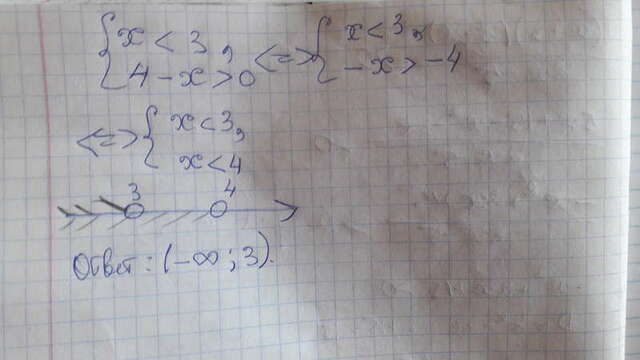 { x < 3, <=> { x < 3,
{ 4 - x > 0 { - x > -4
<=> { x < 3,
{ x < 4
3 4
Ответ: (-∞; 3).